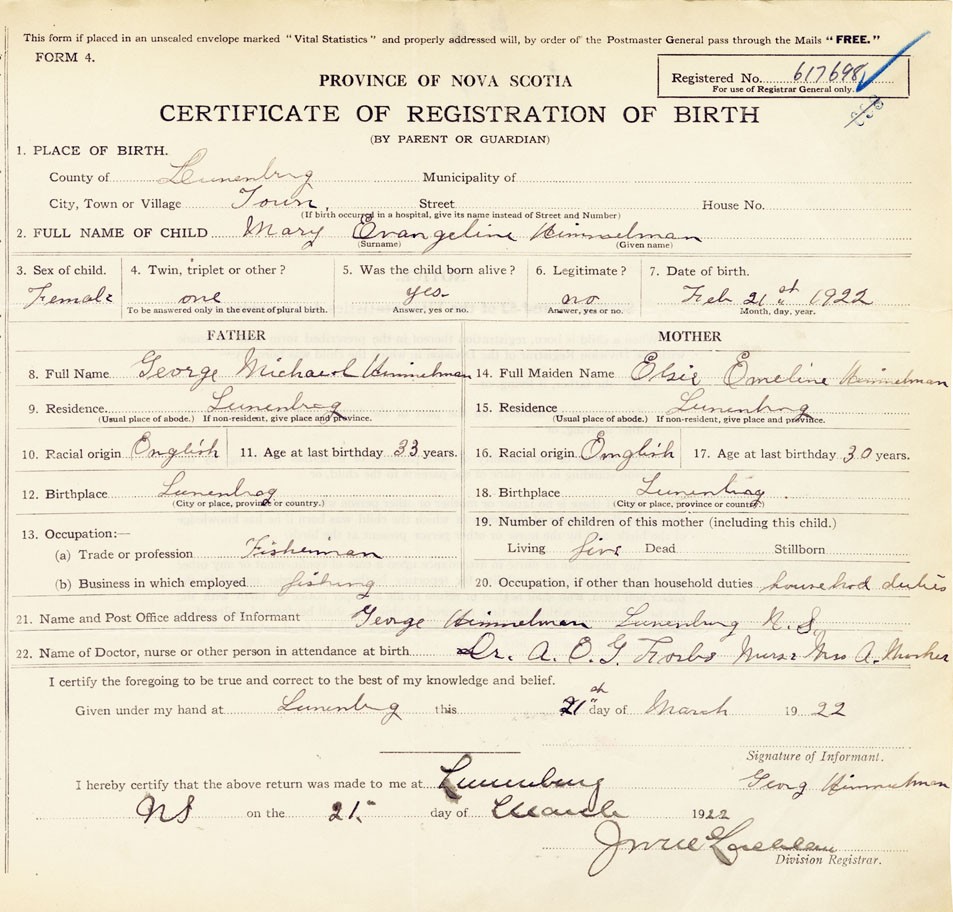 This form if placed in an unsealed envelope marked "Vital Statistics" and properly addressed will, by order of the Postmaster General pass through the Mails "FREE."
FORM 4.
Registered No. 617698
For use of Registrar General only.
PROVINCE OF NOVA SCOTIA
CERTIFICATE OF REGISTRATION OF BIRTH
(BY PARENT OR GUARDIAN)
1. PLACE OF BIRTH.
County of Lunenbrg Municipality of
City, Town or Village Town, Street House No.
(If birth occurred in a hospital, give its name instead of Street and Number)
2. FULL NAME OF CHILD Mary Evangeline Himmelman
(Surname) (Given name)
3. Sex of child. 4. Twin, triplet or other? 5. Was the child born alive? 6. Legitimate? 7. Date of birth.
Female one yes no Feb 21st 1922
To be answered only in the event of plural birth. Answer, yes or no. Answer, yes or no. Month, day, year.
FATHER MOTHER
8. Full Name George Michael Himmelman 14. Full Maiden Name Elsie Emeline Himmelman
9. Residence. Lunenbrg 15. Residence Lunenbrg
(Usual place of abode.) If non-resident, give place and province. (Usual place of abode.) If non-resident, give place and province.
10. Racial origin English 11. Age at last birthday 33 years. 16. Racial origin Emglish 17. Age at last birthday 30 years.
12. Birthplace Lunenbrg 18. Birthplace Lunenbrg
(City or place, province or country.) (City or place, province or country.)
13. Occupation:— 19. Number of children of this mother (including this child.)
(a) Trade or profession Fisherman Living five Dead Stillborn
(b) Business in which employed fishing 20. Occupation, if other than household duties househod duties
21. Name and Post Office address of Informant George Himmelman Lunenburg N. S.
22. Name of Doctor, nurse or other person in attendance at birth Dr. A. E. G. Forbs Nurse Mrs A.
I certify the foregoing to be true and correct to the best of my knowledge and belief.
Given under my hand at Lunenbrg this 21st day of March 1922
Signature of Informant.
I hereby certify that the above return was made to me at Lunenburg Georg Himmelman
NS on the 21st day of March 1922
Division Registrar.